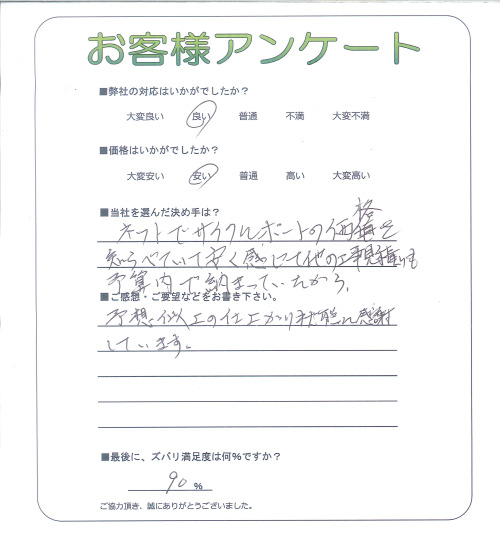 お客様アンケート
■弊社の対応はいかがでしたか？
大変良い 良い 普通 不満 大変不満
■価格はいかがでしたか？
大変安い 安い 普通 高い 大変高い
■当社を選んだ決め手は？
ネットでサイクルポートの価格を
知らべていて安く感じて他の工事見積りも
予算内で納まっていたから、
■ご感想・ご要望などをお書き下さい。
予想以上の仕上がり状態に感謝
しています。
■最後に、ズバリ満足度は何％ですか？
90 ％
ご協力頂き、誠にありがとうございました。